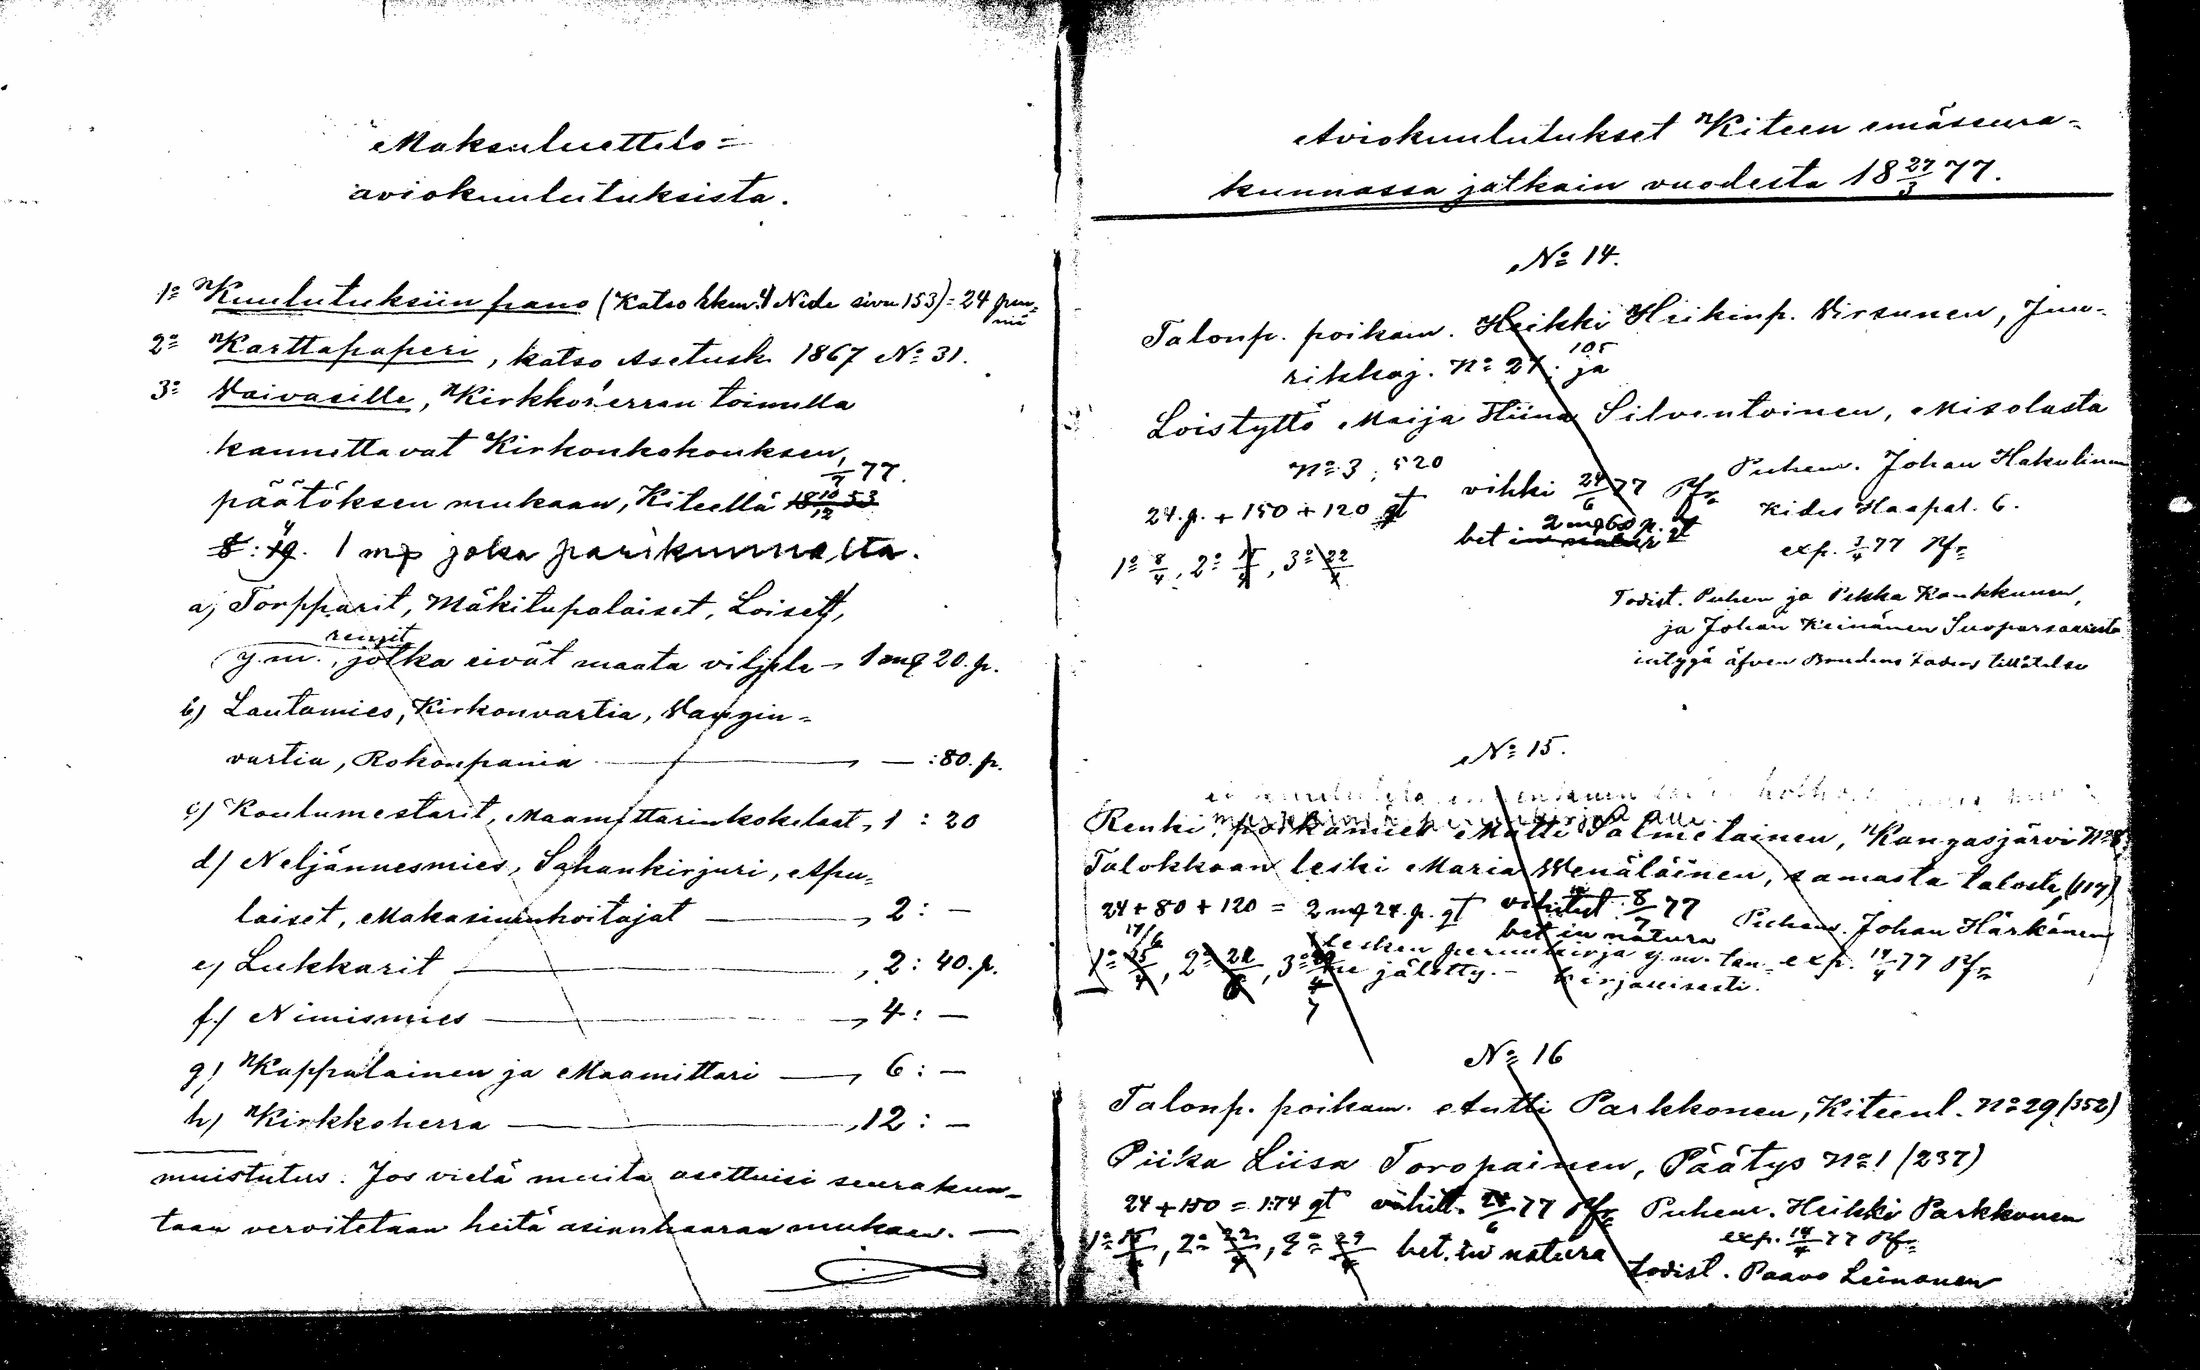 Maksuluettelo=
aviokuulutuksista.
1º Kuulutuksiin pano (Katso Kkm. 4 Nide sivu 153) = 24 pen-
niä
2º Karttapaperi, katso Asetusk. 1867 Nº 31.
3º Vaivasille, Kirkkoherran toimella
kannettavat Kirkonkokouksen
1/7 77.
päätöksen mukaan, Kiteellä 18 10/12 53
1 mp joka parikunnalta.
a) Torpparit, Mäkitupalaiset, Loiset,
rengit
y.m., jotka eivät maata viljele 1 mp 20. p.
b) Lautamies, Kirkonvartia, Vangin-
vartia, Rokonpania — : 80. p.
c) Koulumestarit, Maamittarinkokelaat, 1 : 20
d) Neljännesmies, Sahankirjuri, Apu-
laiset, Makasiininhoitajat —, 2 : —
e) Lukkarit —, 2 : 40. p.
f) Nimismies —, 4 : —
g) Kappalainen ja Maamittari —, 6 : —
h) Kirkkoherra —, 12 : —
muistutus: Jos vielä muita asettuisi seurakun-
taan veroitetaan heitä asianhaaran mukaan. —
Aviokuulutukset Kiteen emäseura-
kunnassa jatkain vuodesta 18 27/3 77.
Nº 14.
Talonp. poikam. Heikki Heikinp. Hirsunen, Juu-
rikkaj. Nº 27. 105 ja
Loistyttö Maija Stiina Silventoinen, Misolasta
Nº 3, 520
24. p. + 150 + 120 gt vihki 24/6 77 Pfr Puhem. Johan Hakulinen
Kides Haapal. 6.
bet in natur 2 mp 60 p. gt
exp. 3/4 77 Pfr
1º 8/4, 2º 15/4, 3º 22/4
Todist. Puhem ja Pekka Kankkunen,
ja Johan Keinänen Suoparsaaresta
intyga äfven Brudens faders tillåtelse
Nº 15.
Renki, poikamies Matti Salmelainen, Kangasjärvi Nº 8
Talokkaan leski Maria Wenäläinen, samasta talosta, (117)
24 + 80 + 120 = 2 mp 24. p. gt vihityt 8/7 77
bet in natura Puhem. Johan Härkönen
17/6
lesken perunkirja y.m. tan- exp. 14/4 77 Pfr
jätetty. — kirjallisesti.
Nº 16
Talonp. poikam. Antti Parkkonen, Kiteenl. Nº 29 (352)
Piika Liisa Toropainen, Päätys Nº 1 (237)
24 + 150 = 1.74 gt vihitt. 24/6 77 Pfr Puhem. Heikki Parkkonen
exp. 14/4 77 Pfr
1º 15/4, 2º 22/4, 3º 29/4 bet. in natura
todist. Paavo Leinonen